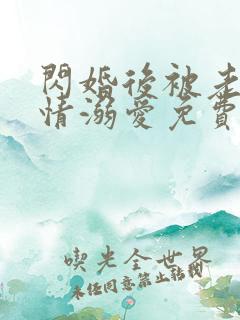 閃婚後被老
情溺愛免費
喫光全世界
未經同意禁止轉載